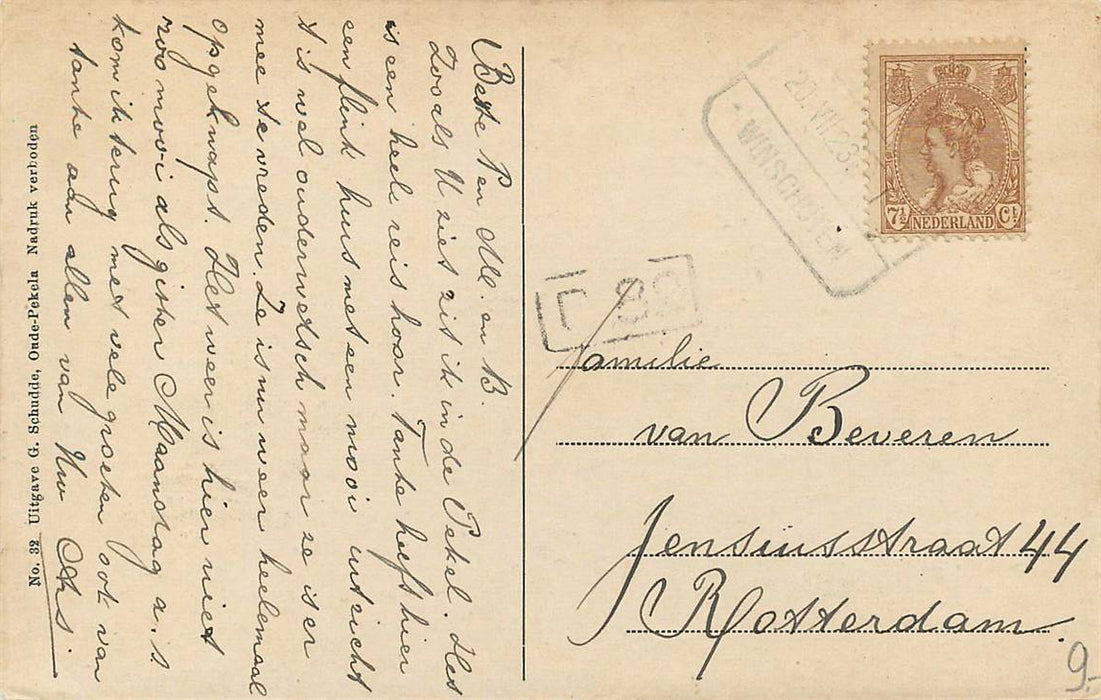 Beste P en M. en B.
Zooals U ziet zit ik in de Pekel. Het
is een heele reis hoor. Tante heeft hier
een flink huis met een mooi uitzicht
t is wel ouderwetsch maar ze is er
mee tevreden. Ze is nu weer heelemaal
opgeknapt. Het weer is hier niet
zoo mooi als gister Maandag a.s
kom ik terug met vele groeten ook van
tante aan allen van Uw Chs.
No. 32 Uitgave G. Schudde, Oude-Pekela Nadruk verboden
20.VII.23
WINSCHOTEN
7½ NEDERLAND Ct
Familie
van Beveren
Jensiusstraat 44
Rotterdam.
9.-